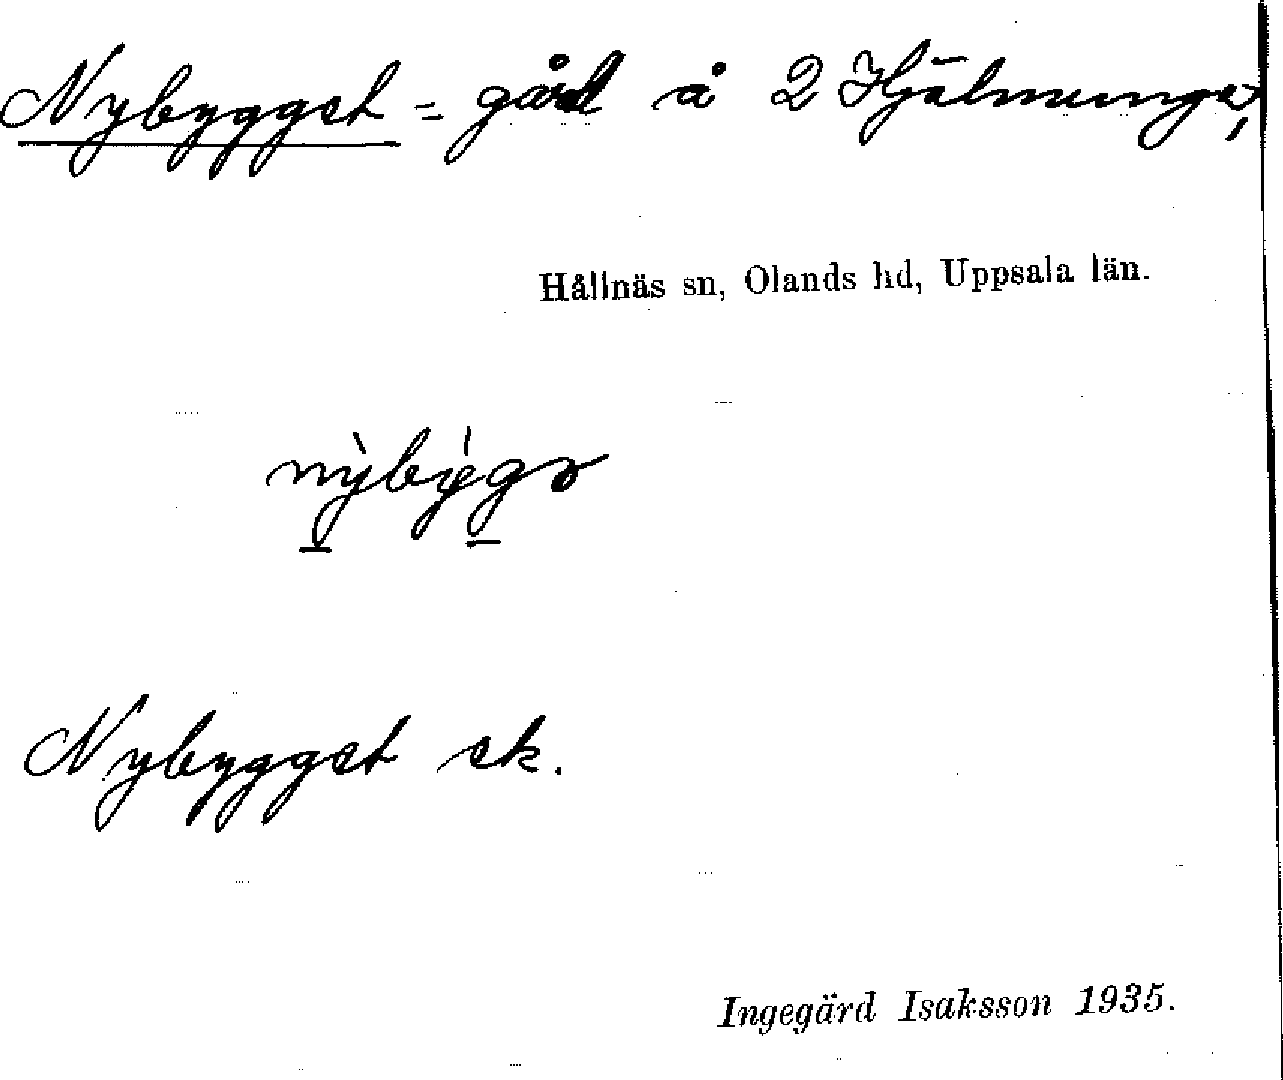 Nybygget = gård å 2 Hjälmunge,
Hållnäs sn, Olands hd, Uppsala län.
nỳbýgə
Nybygget ek.
Ingegärd Isaksson 1935.